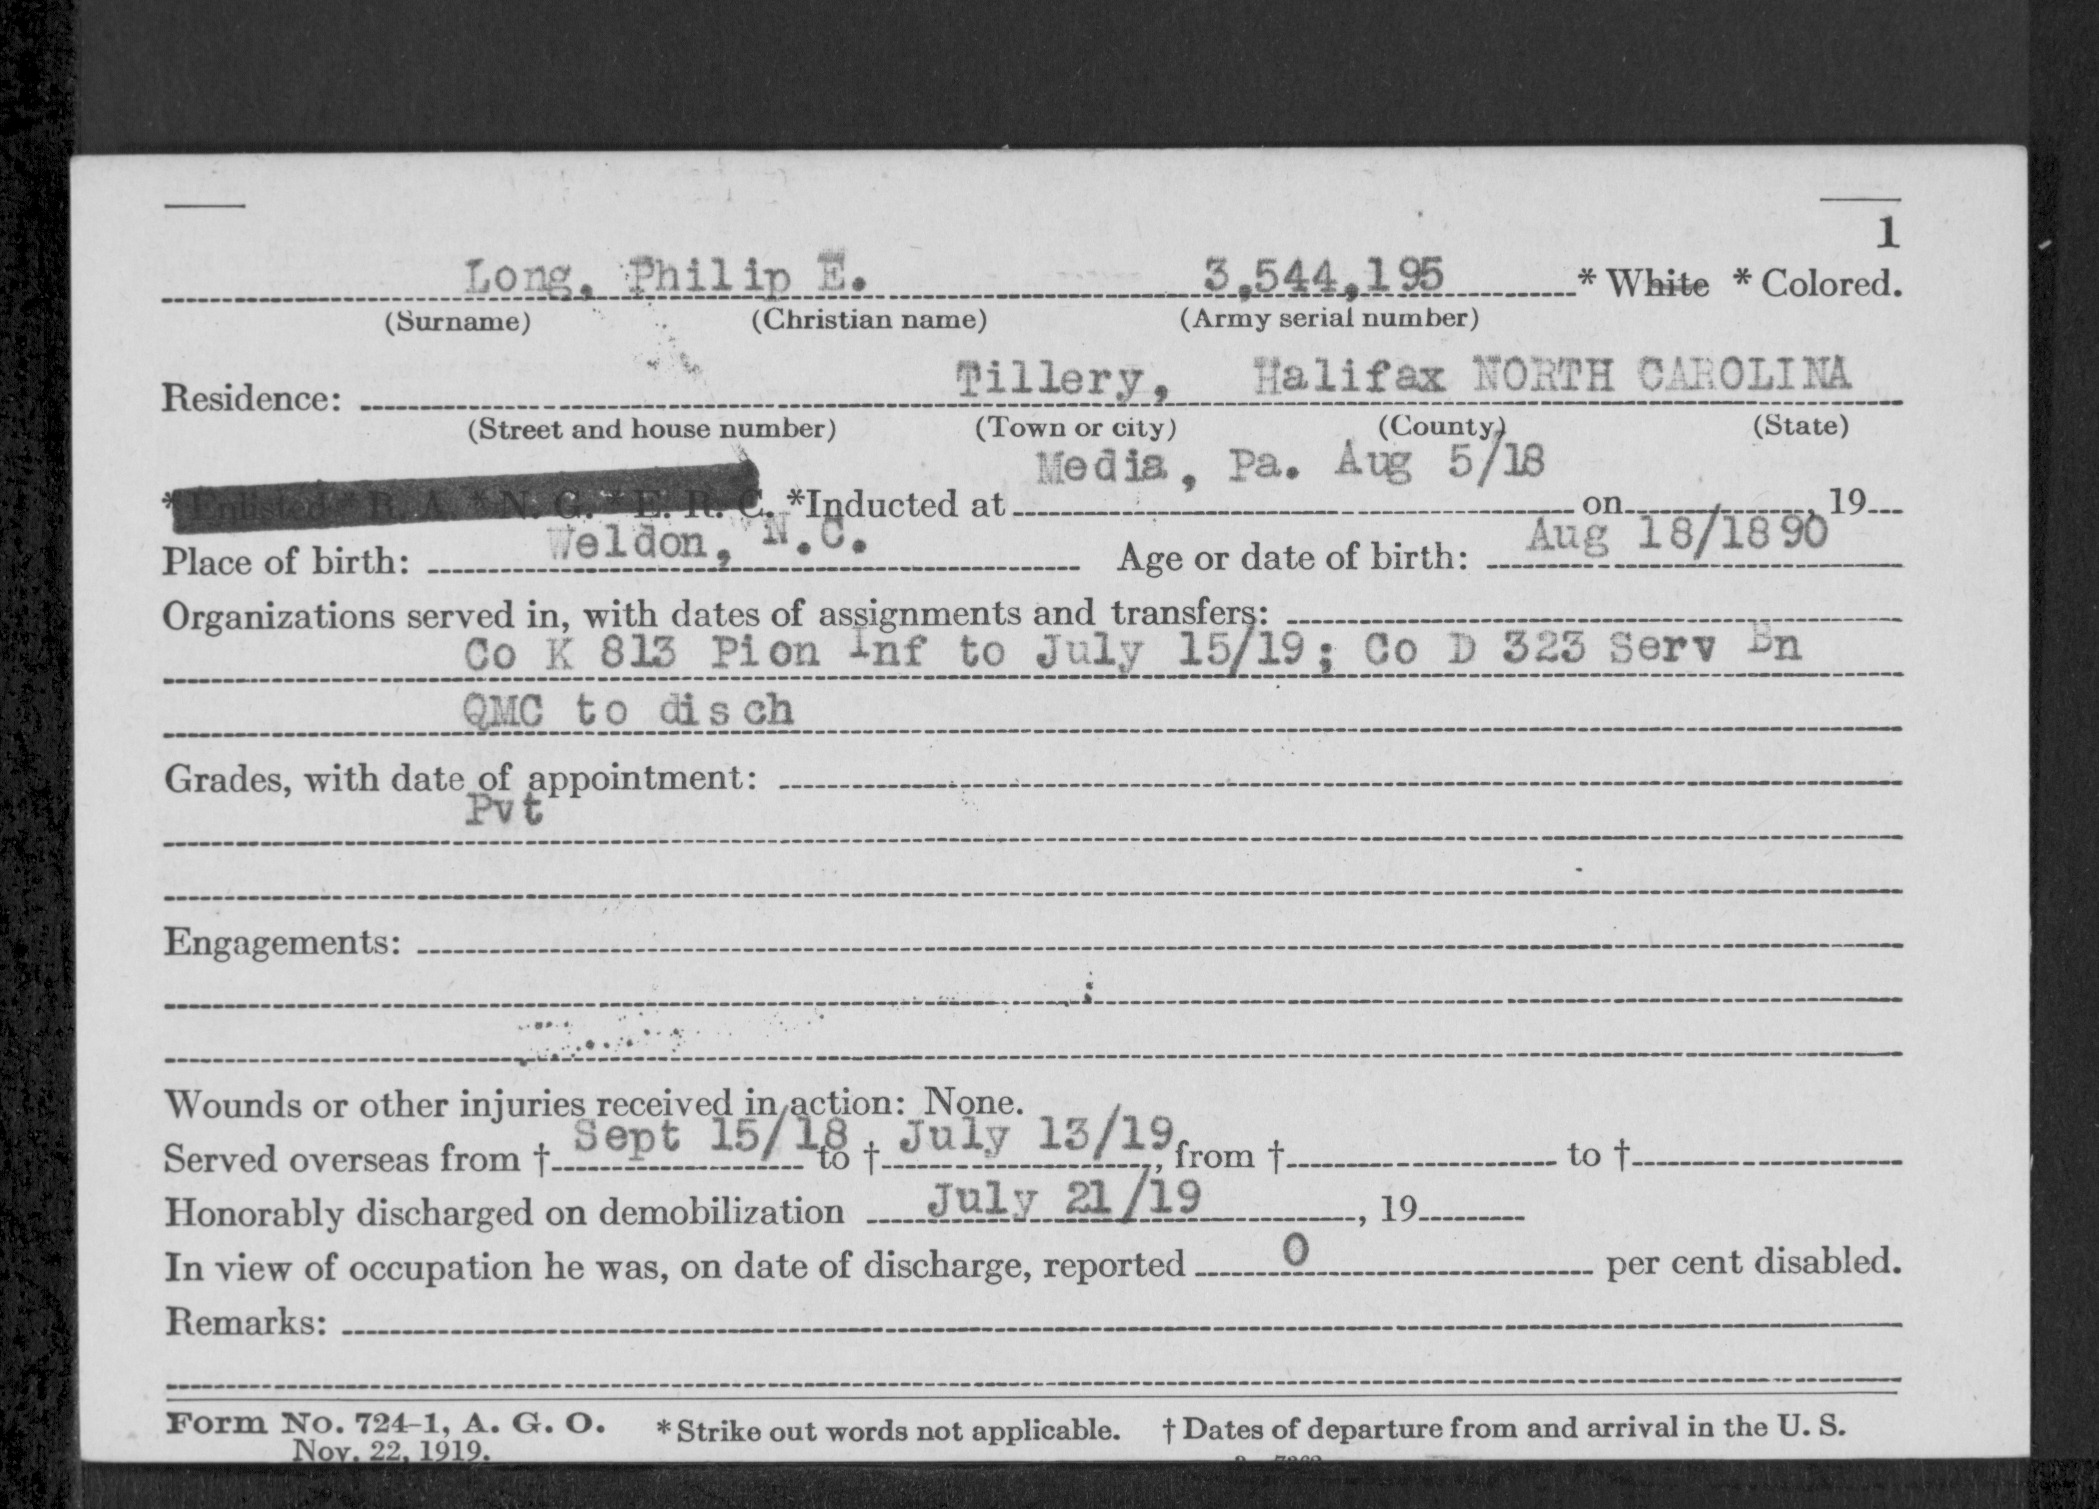 1
Long, Philip E. 3,544,195 * White * Colored.
(Surname) (Christian name) (Army serial number)
Residence: Tillery, Halifax NORTH CAROLINA
(Street and house number) (Town or city) (County) (State)
Media, Pa. Aug 5/18
*Enlisted * R. A. * N. G. * E. R. C. *Inducted at on , 19
Place of birth: Weldon, N.C. Age or date of birth: Aug 18/1890
Organizations served in, with dates of assignments and transfers:
Co K 813 Pion Inf to July 15/19; Co D 323 Serv Bn
QMC to disch
Grades, with date of appointment:
Pvt
Engagements:
Wounds or other injuries received in action: None.
Served overseas from † Sept 15/18 to † July 13/19, from † to †
Honorably discharged on demobilization July 21/19 , 19
In view of occupation he was, on date of discharge, reported 0 per cent disabled.
Remarks:
Form No. 724-1, A. G. O. * Strike out words not applicable. † Dates of departure from and arrival in the U. S.
Nov. 22, 1919.